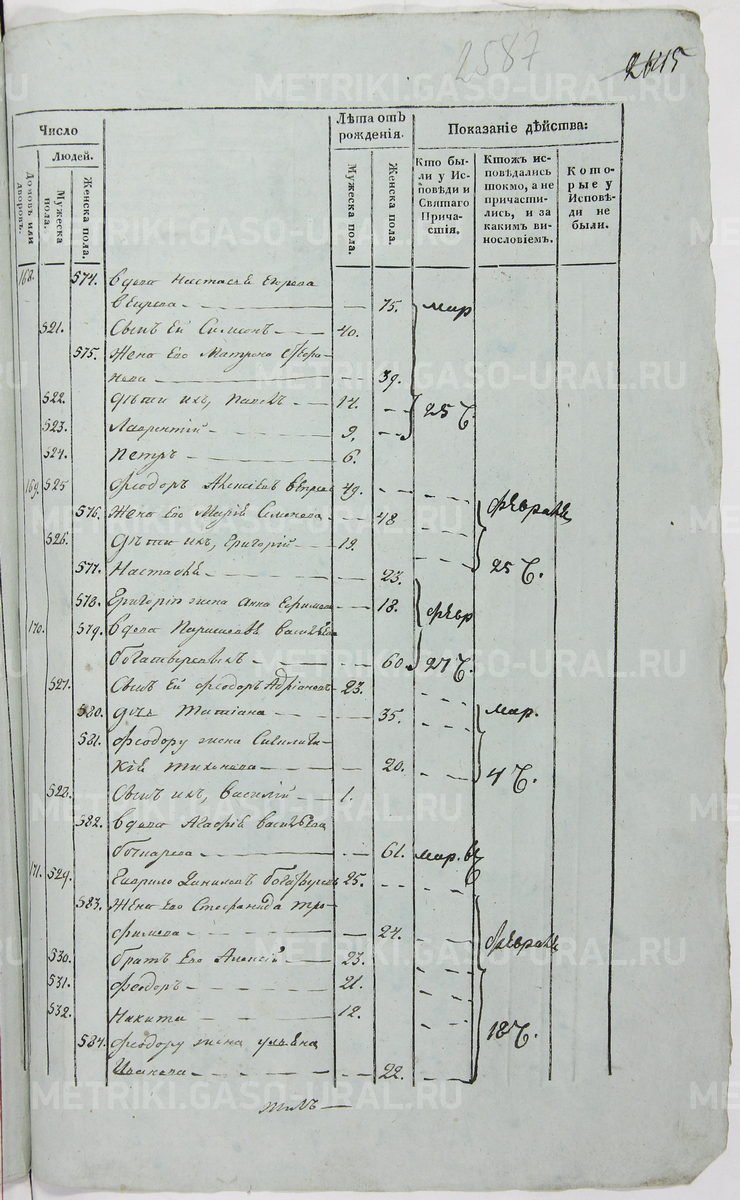 2587
2615
Число
Людей.
Домовъ или дворовъ.
Мужеска пола.
Женска пола.
Лѣта отъ рожденія.
Мужеска пола.
Женска пола.
Показаніе дѣйства:
Кто бы-
ли у Ис-
повѣди и
Святаго
Прича-
стія.
Ктожъ ис-
повѣдались
токмо, а не
причасти-
лись, и за
какимъ ви-
нословіемъ.
Кото-
рые у
Исповѣ-
ди не
были.
168. 574. вдова Настасья Егорова
75. мар
521. Сынъ Ей Симеонъ 40.
575. Жена Его Матрона
39.
522. Дѣти ихъ, Павелъ 14. 25 ч.
523. Лаврентій 9.
524. Петръ 6.
169. 525 Феодоръ 49.
576. Жена Его Марія Симонова 48 февраля
526. Дѣти ихъ, Григорій 19.
577. Настасья 23. 25 ч.
578. Григорія жена Анна Ефимова 18. февр
170. 579. вдова Васильева
60. 27 ч.
527. Сынъ Ей Феодоръ Адріановъ 23.
580. Татіана 35. мар.
581. Феодору жена
кія Тихонова 20. 4 ч.
528. Сынъ ихъ, Василій 1.
582. вдова Агафія Васильева
61. мар.
171. 529. Гаврило Даниловъ 25.
583. Жена Его Стефанида Тро-
фимова 24. февраля
530. братъ Его Алексій 23.
531. Феодоръ 21.
532. Никита 12. 18 ч.
584. Феодору жена Ульяна
Иванова 22.
METRIKI.GASO-URAL.RU